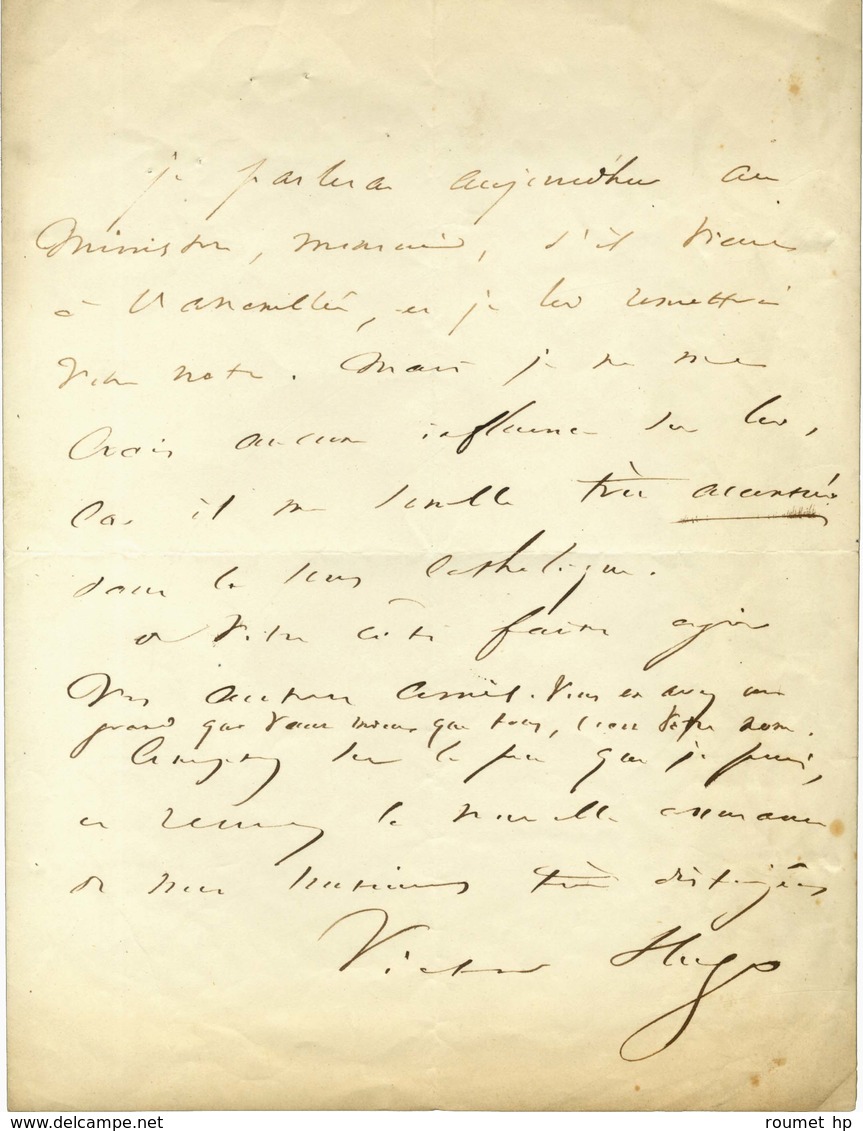 je parlerai aujourd'hui au
Ministre, monsieur, s'il vient
à l'assemblée, et je lui remettrai
votre note. Mais je ne me
crois aucune influence sur lui,
car il me semble très accentué
dans le sens catholique.
de votre côté faire agir
vos autres amis. Vous en avez un
grand qui vaut mieux que tous, c'est votre nom.
Comptez sur le peu que je puis,
et recevez la nouvelle assurance
de mes sentiments très distingués
Victor Hugo
roumet hp
www.delcampe.net